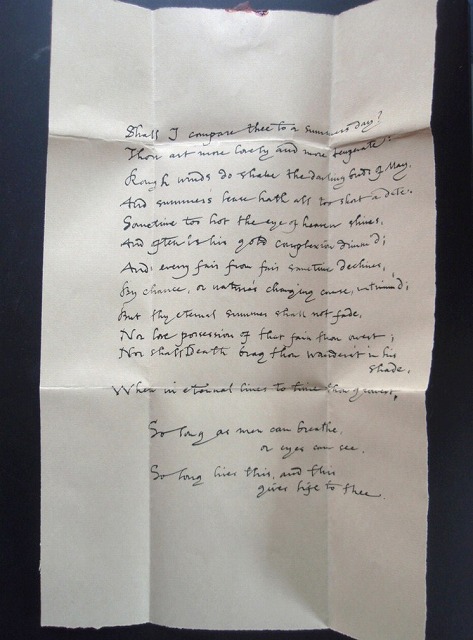 Shall I compare thee to a summers day?
Thou art more lovely and more temperate:
Rough winds do shake the darling buds of May,
And summers lease hath all too short a date:
Sometime too hot the eye of heaven shines,
And often is his gold complexion dimm'd;
And every fair from fair sometime declines,
By chance, or nature's changing course, untrimm'd;
But thy eternal summer shall not fade,
Nor lose possession of that fair thou owest;
Nor shall Death brag thou wander'st in his
shade,
When in eternal lines to time thou growest,
So long as men can breathe,
or eyes can see,
So long lives this, and this
gives life to thee.